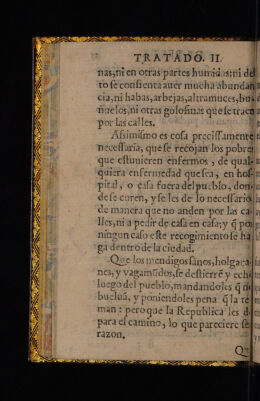 TRATADO. II.
nas, ni en otras partes humidas: ni de
to se consienta auer mucha abundan
cia, ni habas, arbejas, altramuces, bu-
ñuelos, ni otras golosinas que se traen
por las calles.
Assimismo es cosa precissamente
necessaria, que se recojan los pobres
que estuuieren enfermos, de qual-
quiera enfermedad que sea, en hos
pital, o casa fuera del pueblo, don-
de se curen, y se les de lo necessario
de manera que no anden por las ca
lles, ni a pedir de casa en casa; y q̃ por
ningun caso este recogimiento se ha
ga dentro de la ciudad.
Que los mendigos sanos, holgaza-
nes, y vagamũdos, se destierrẽ y eche
luego del pueblo, mandandoles q̃ no
bueluã, y poniendoles pena q̃ la te
man: pero que la Republica les de
para el camino, lo que pareciere se
razon.